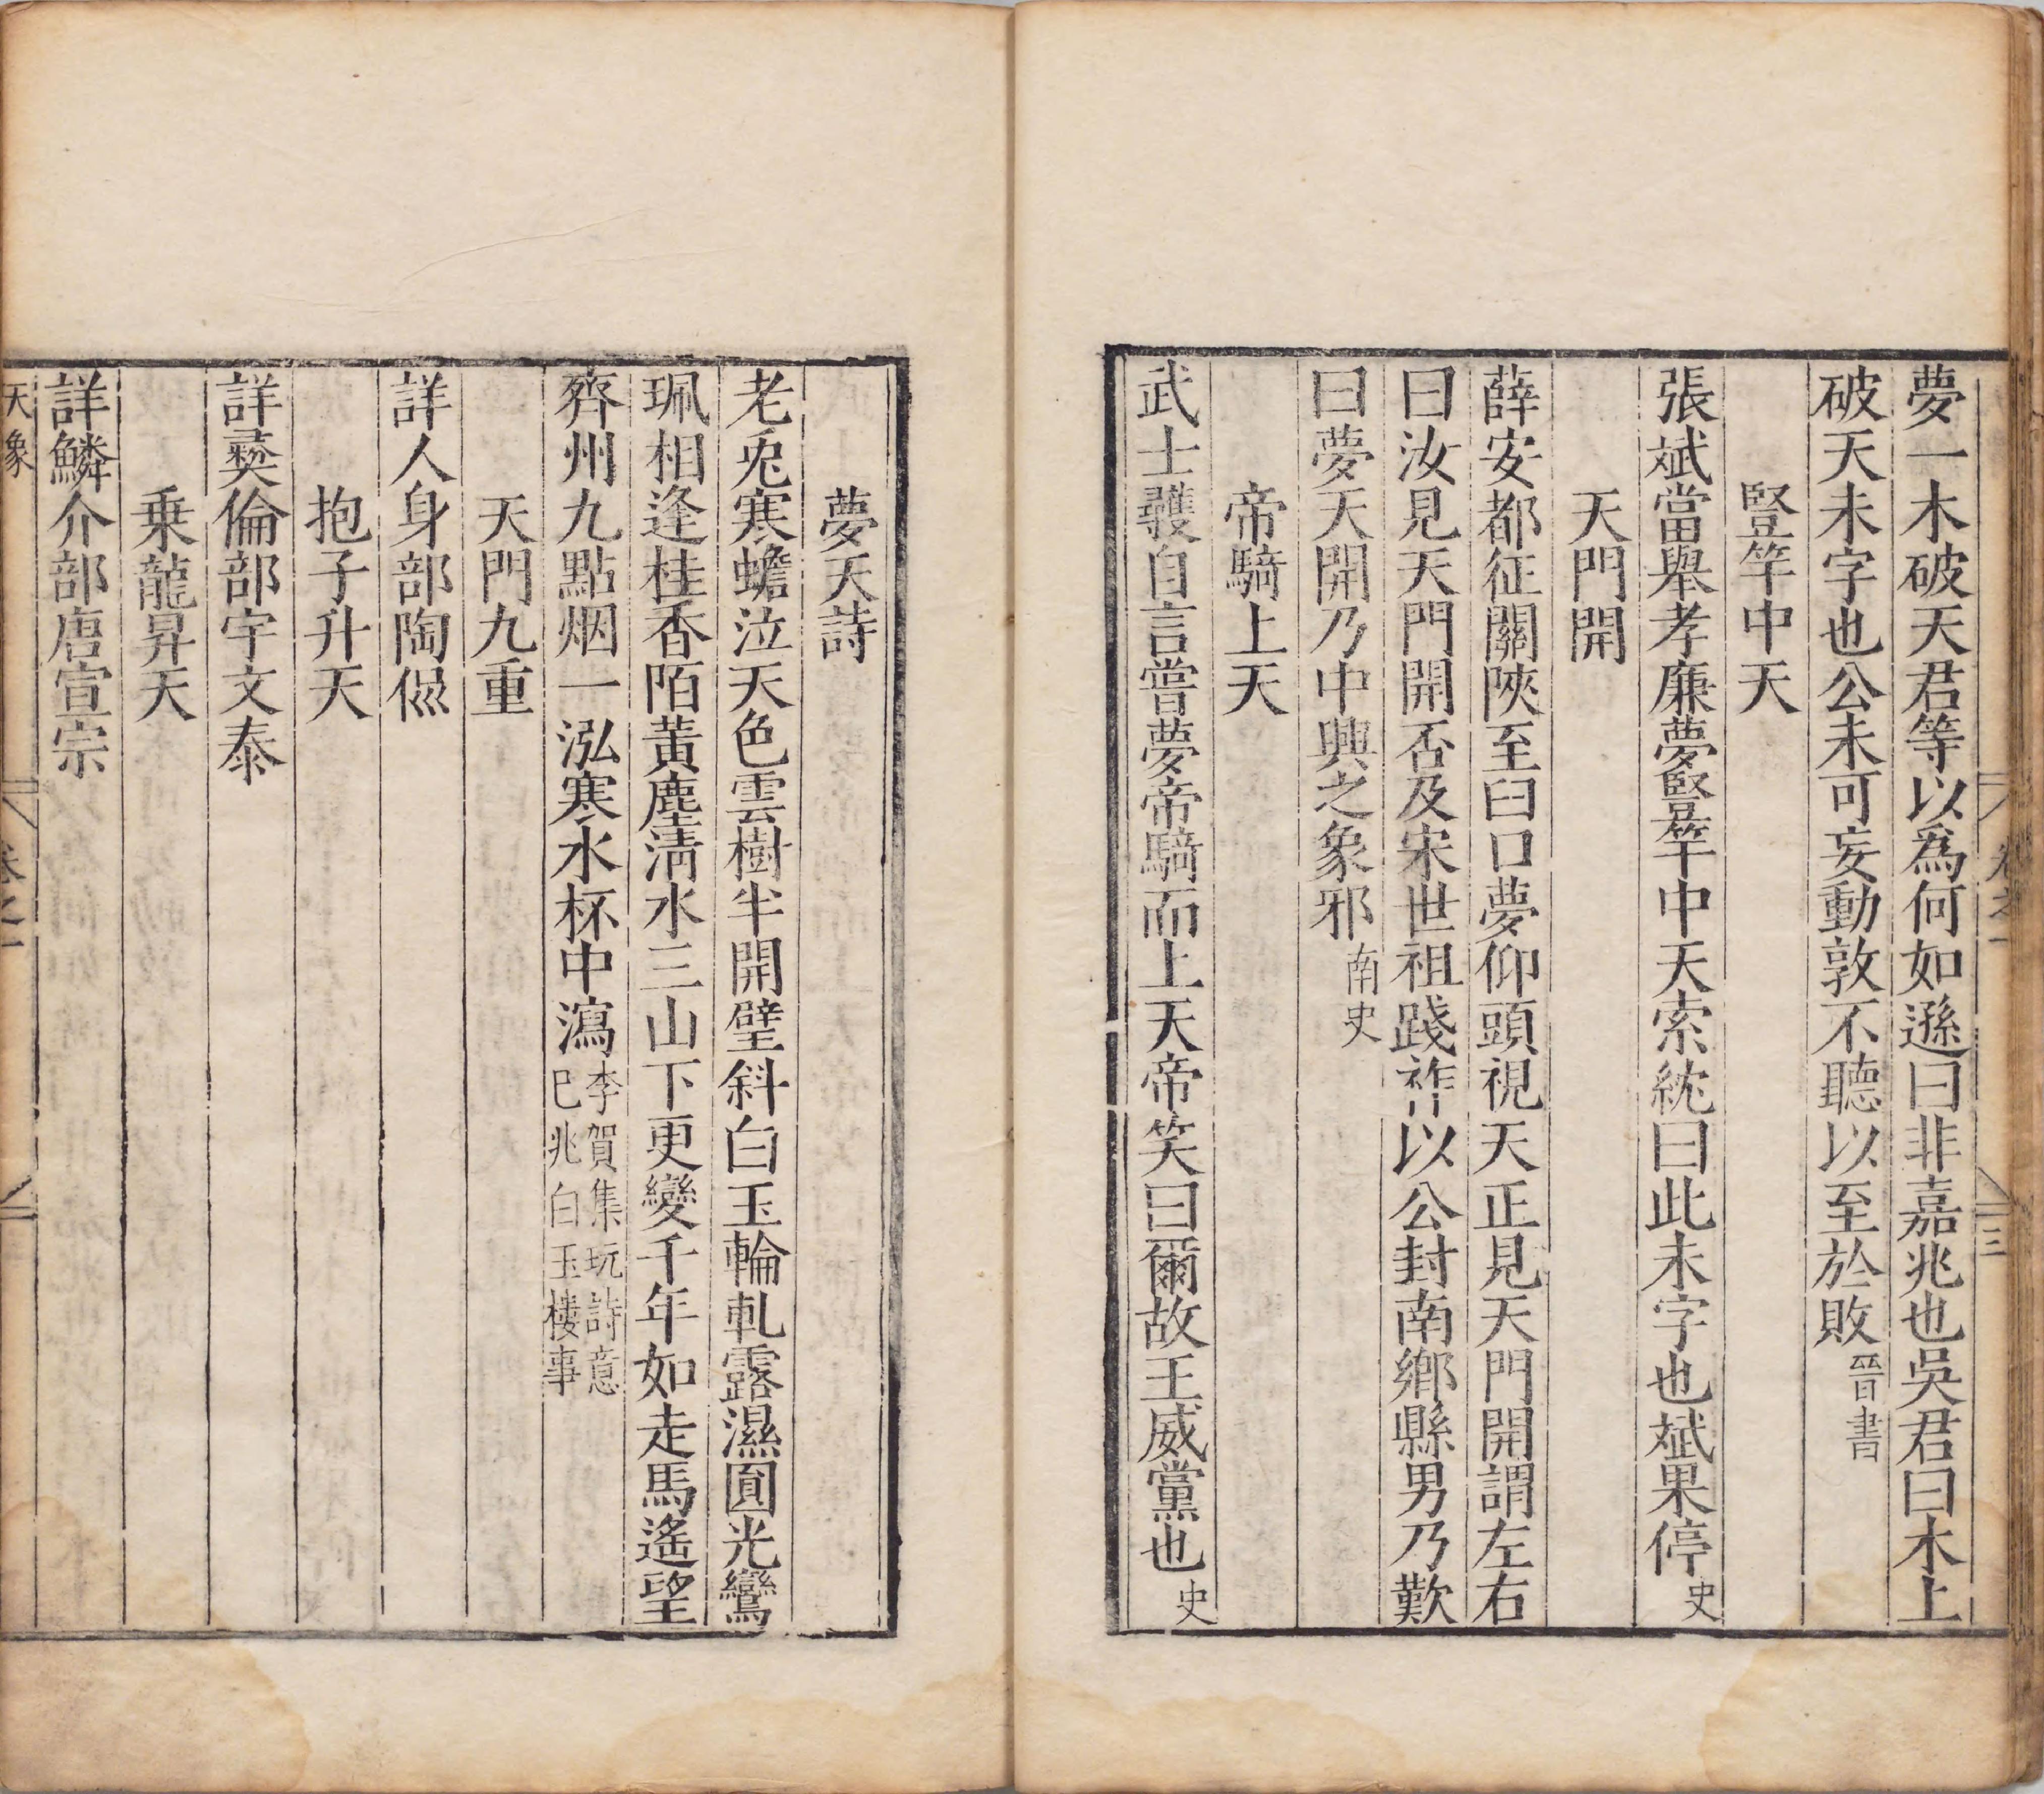 夢一木破天君等以爲何如遜曰非嘉兆也吳君曰木上
破天未字也公未可妄動敦不聽以至於敗晉書
豎竿中天
張斌當舉孝廉夢豎竿中天索紞曰此未字也斌果停史
天門開
薛安都征關陝至臼口夢仰頭視天正見天門開謂左右
曰汝見天門開否及宋世祖踐祚以公封南鄉縣男乃歎
曰夢天開乃中興之象邪南史
帝騎上天
武士彠自言嘗夢帝騎而上天帝笑曰爾故王威黨也史
夢天詩
老兎寒蟾泣天色雲樹半開壁斜白玉輪軋露濕圓光鸞
珮相逢桂香陌黃塵淸水三山下更變千年如走馬遙望
齊州九點烟一泓寒水杯中瀉李賀集玩詩意
巳兆白玉樓事
天門九重
詳人身部陶侃
抱子升天
詳彝倫部宇文泰
乗龍昇天
詳鱗介部唐宣宗
天象 卷之一